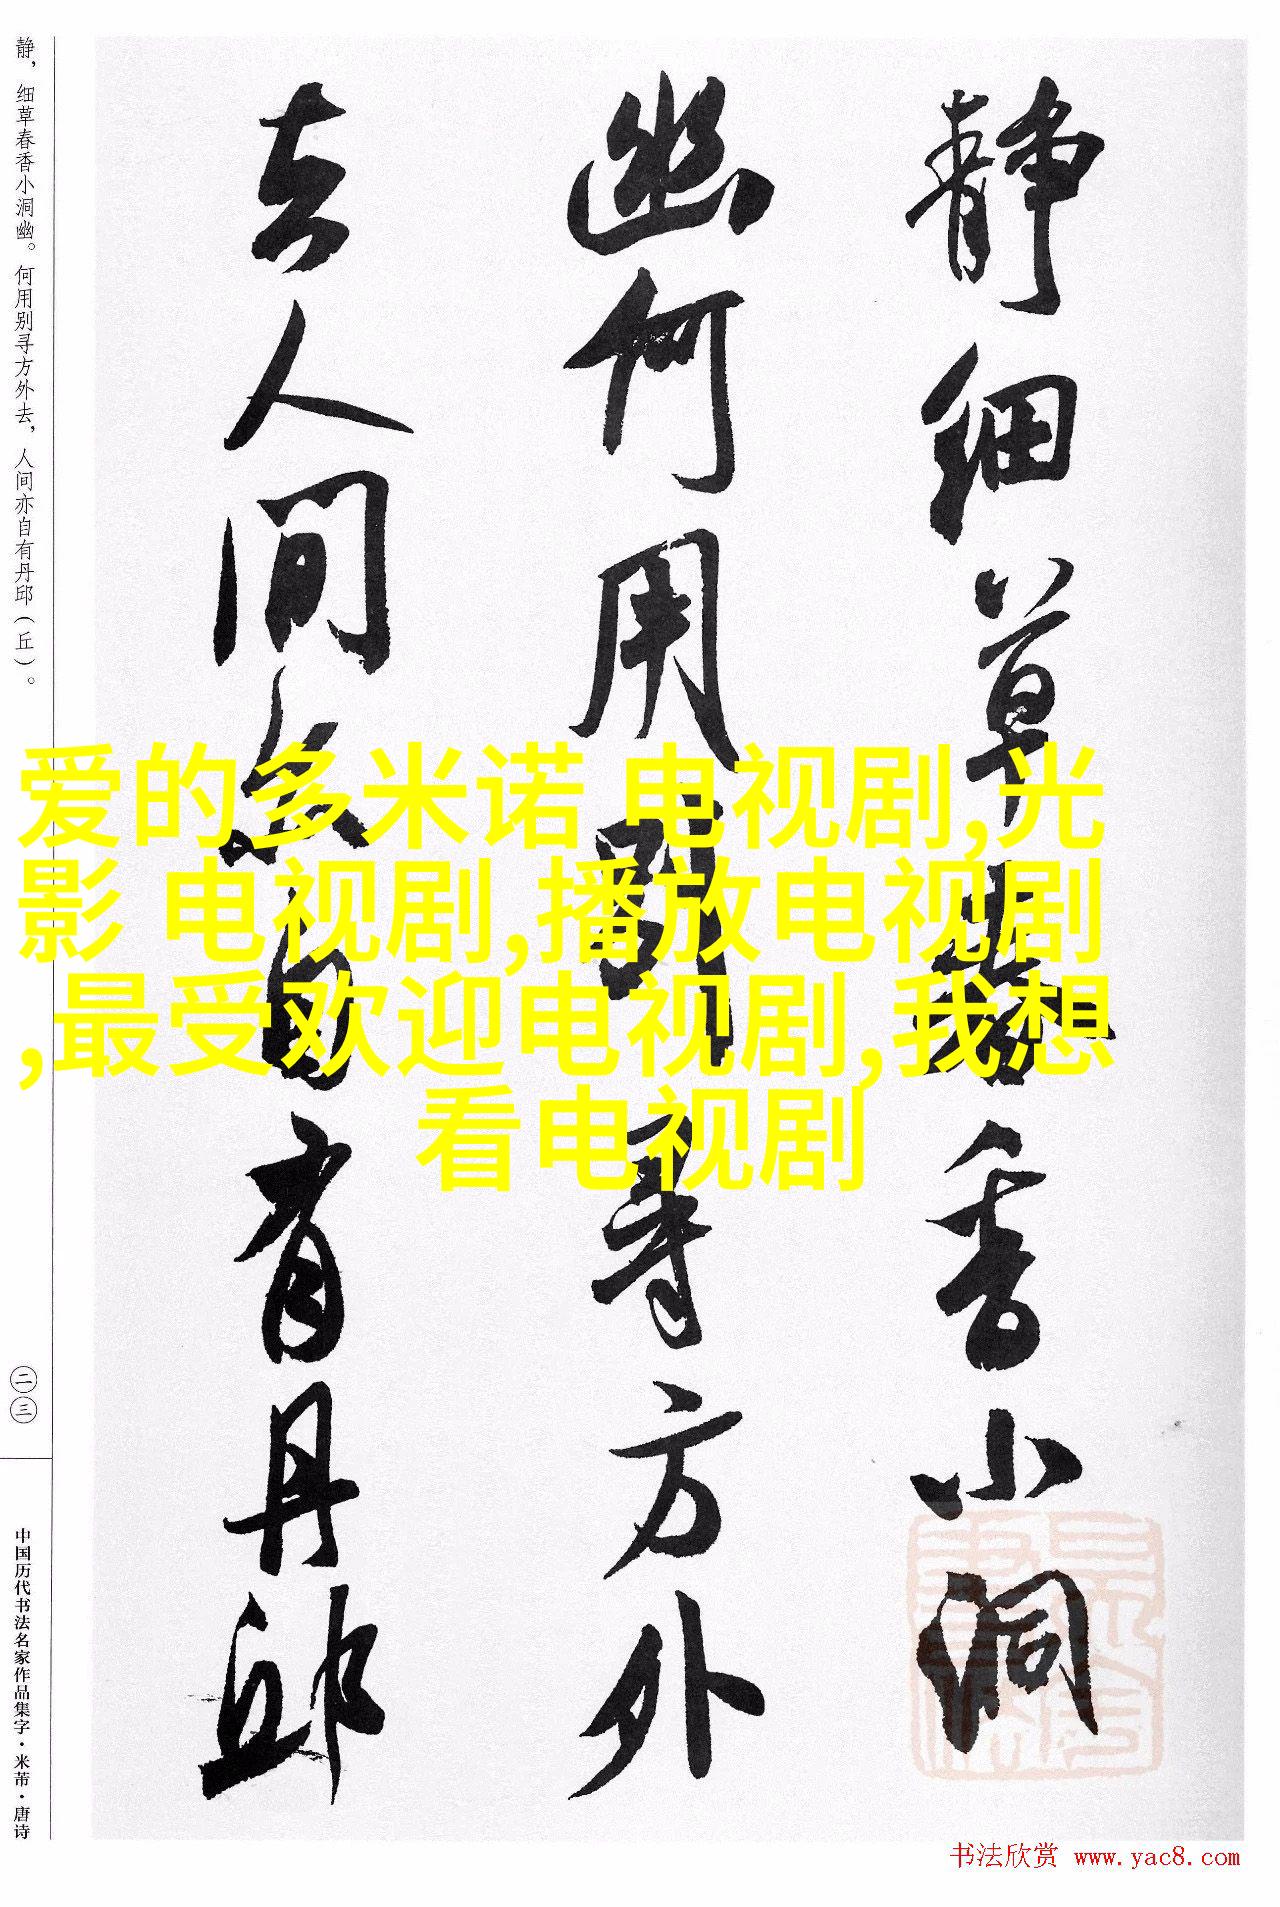 静细草春香小洞
幽何用别寻方外
去人间亦自有丹邱
静，细草春香小洞幽。何用别寻方外去，人间亦自有丹邱（丘）。
二三
中国历代书法名家作品集字·米芾·唐诗
爱的多米诺 电视剧,光
影 电视剧,播放电视剧
,最受欢迎电视剧,我想
看电视剧
书法欣赏 www.yac8.com